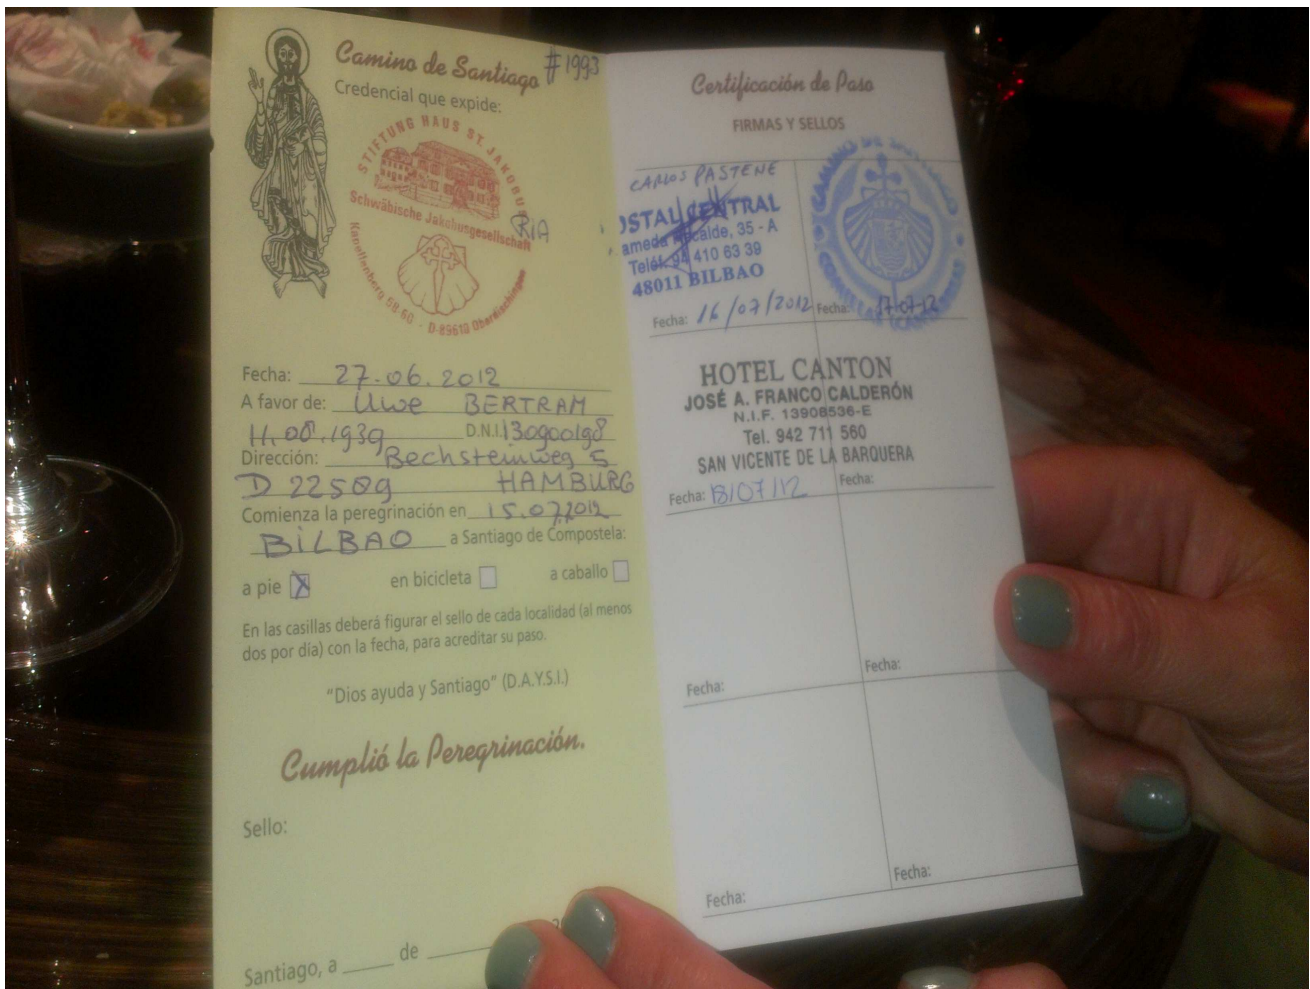 Camino de Santiago #1993
Credencial que expide:
STIFTUNG HAUS ST. JAKOBUS
Schwäbische Jakobusgesellschaft
RIA
Kapellenberg 58-60 - D-89610 Oberdischingen
Fecha: 27.06.2012
A favor de: Uwe BERTRAM
11.08.1939 D.N.I. 130900198
Dirección: Bechsteinweg 5
D 22589 HAMBURG
Comienza la peregrinación en 15.07.2012
BILBAO a Santiago de Compostela:
a pie X en bicicleta a caballo
En las casillas deberá figurar el sello de cada localidad (al menos
dos por día) con la fecha, para acreditar su paso.
"Dios ayuda y Santiago" (D.A.Y.S.I.)
Cumplió la Peregrinación.
Sello:
Santiago, a ____ de
Certificación de Paso
FIRMAS Y SELLOS
CARLOS PASTENE
OSTAL CENTRAL
ameda Recalde, 35 - A
Teléf. 94 410 63 39
48011 BILBAO
Fecha: 16/07/2012
CAMINO DE SANTIAGO
COMILLAS (CANTABRIA)
Fecha: 17-07-12
HOTEL CANTON
JOSÉ A. FRANCO CALDERÓN
N.I.F. 13908536-E
Tel. 942 711 560
SAN VICENTE DE LA BARQUERA
Fecha: 18/07/12
Fecha:
Fecha:
Fecha:
Fecha:
Fecha: